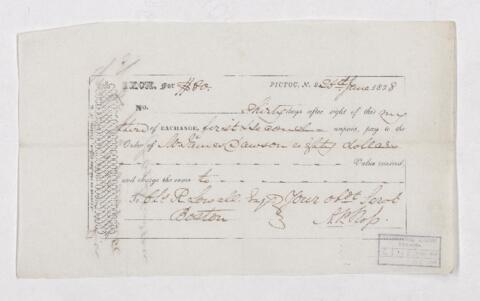 EXCH. For $80. PICTOU, N. S. 26th June 1838
No.
Thirty days after sight of this my
third of EXCHANGE, first & second unpaid, pay to the
Order of Mr James Dawson eighty Dollars
Value received
and charge the same to
To Chs R Lowell Esqr Your obt Servt
Boston